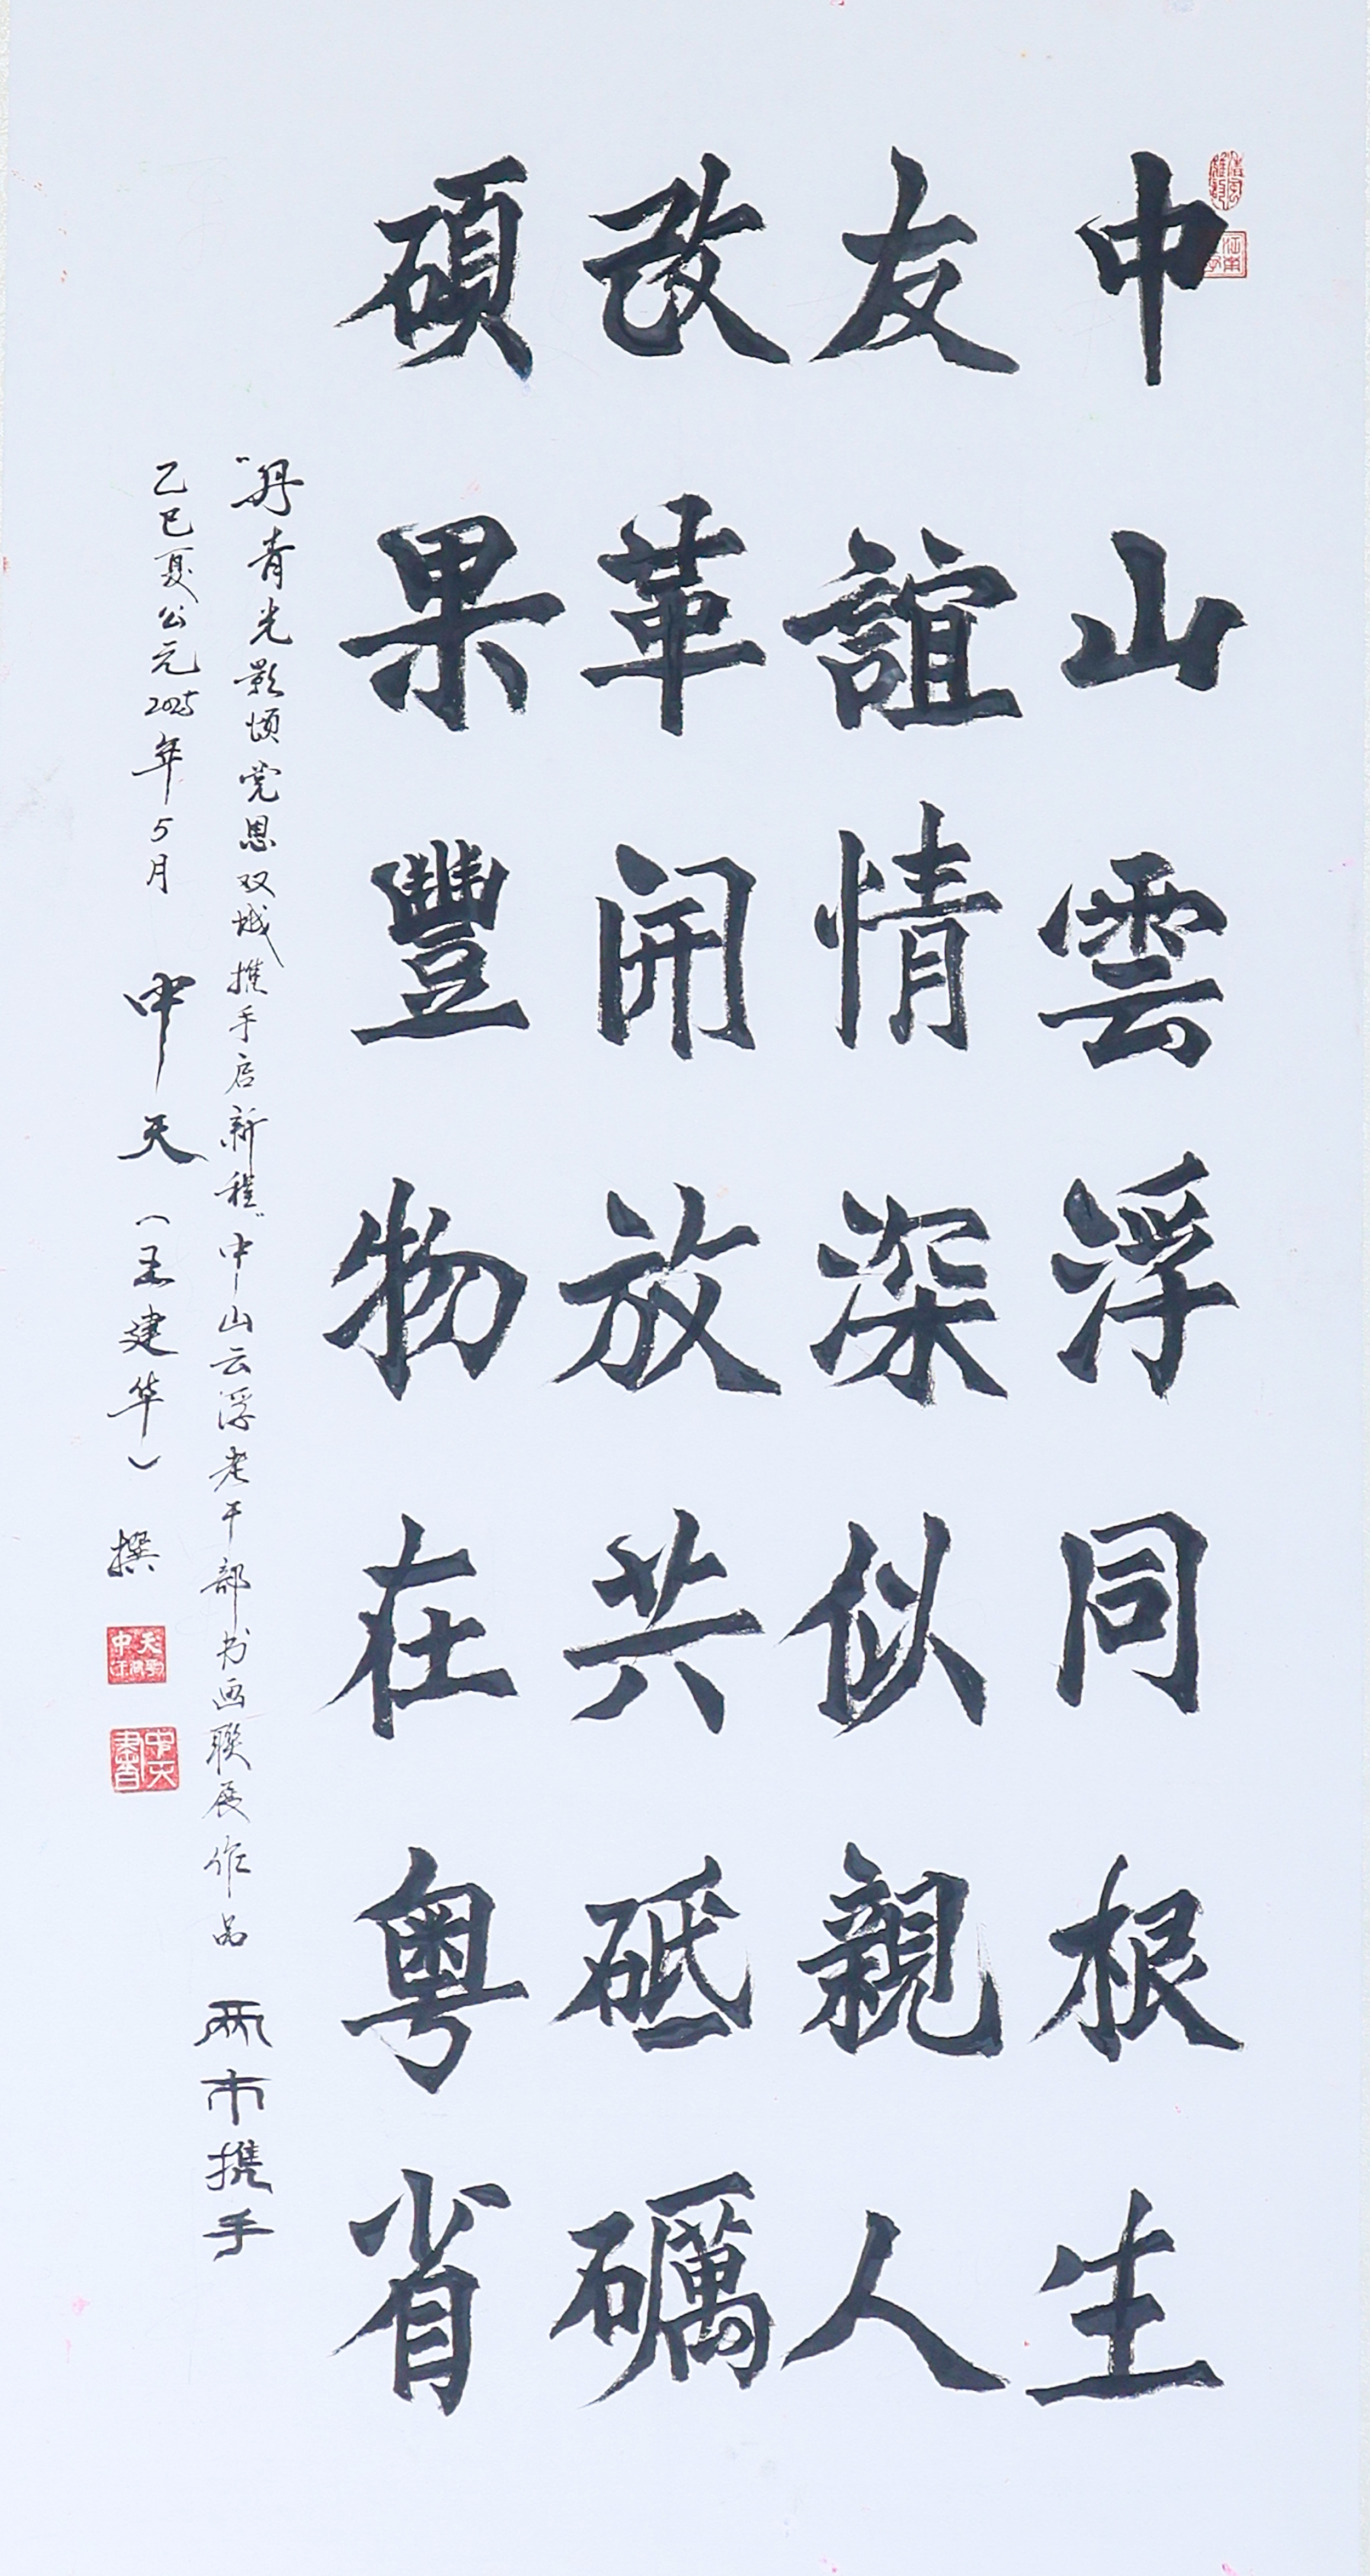 中山雲浮同根生
友誼情深似親人
改革開放共砥礪
碩果豐物在粤省
"丹青光影颂党恩双城携手启新程"中山云浮老干部书画联展作品 两市携手
乙巳夏公元2025年5月 中天（王建华）撰